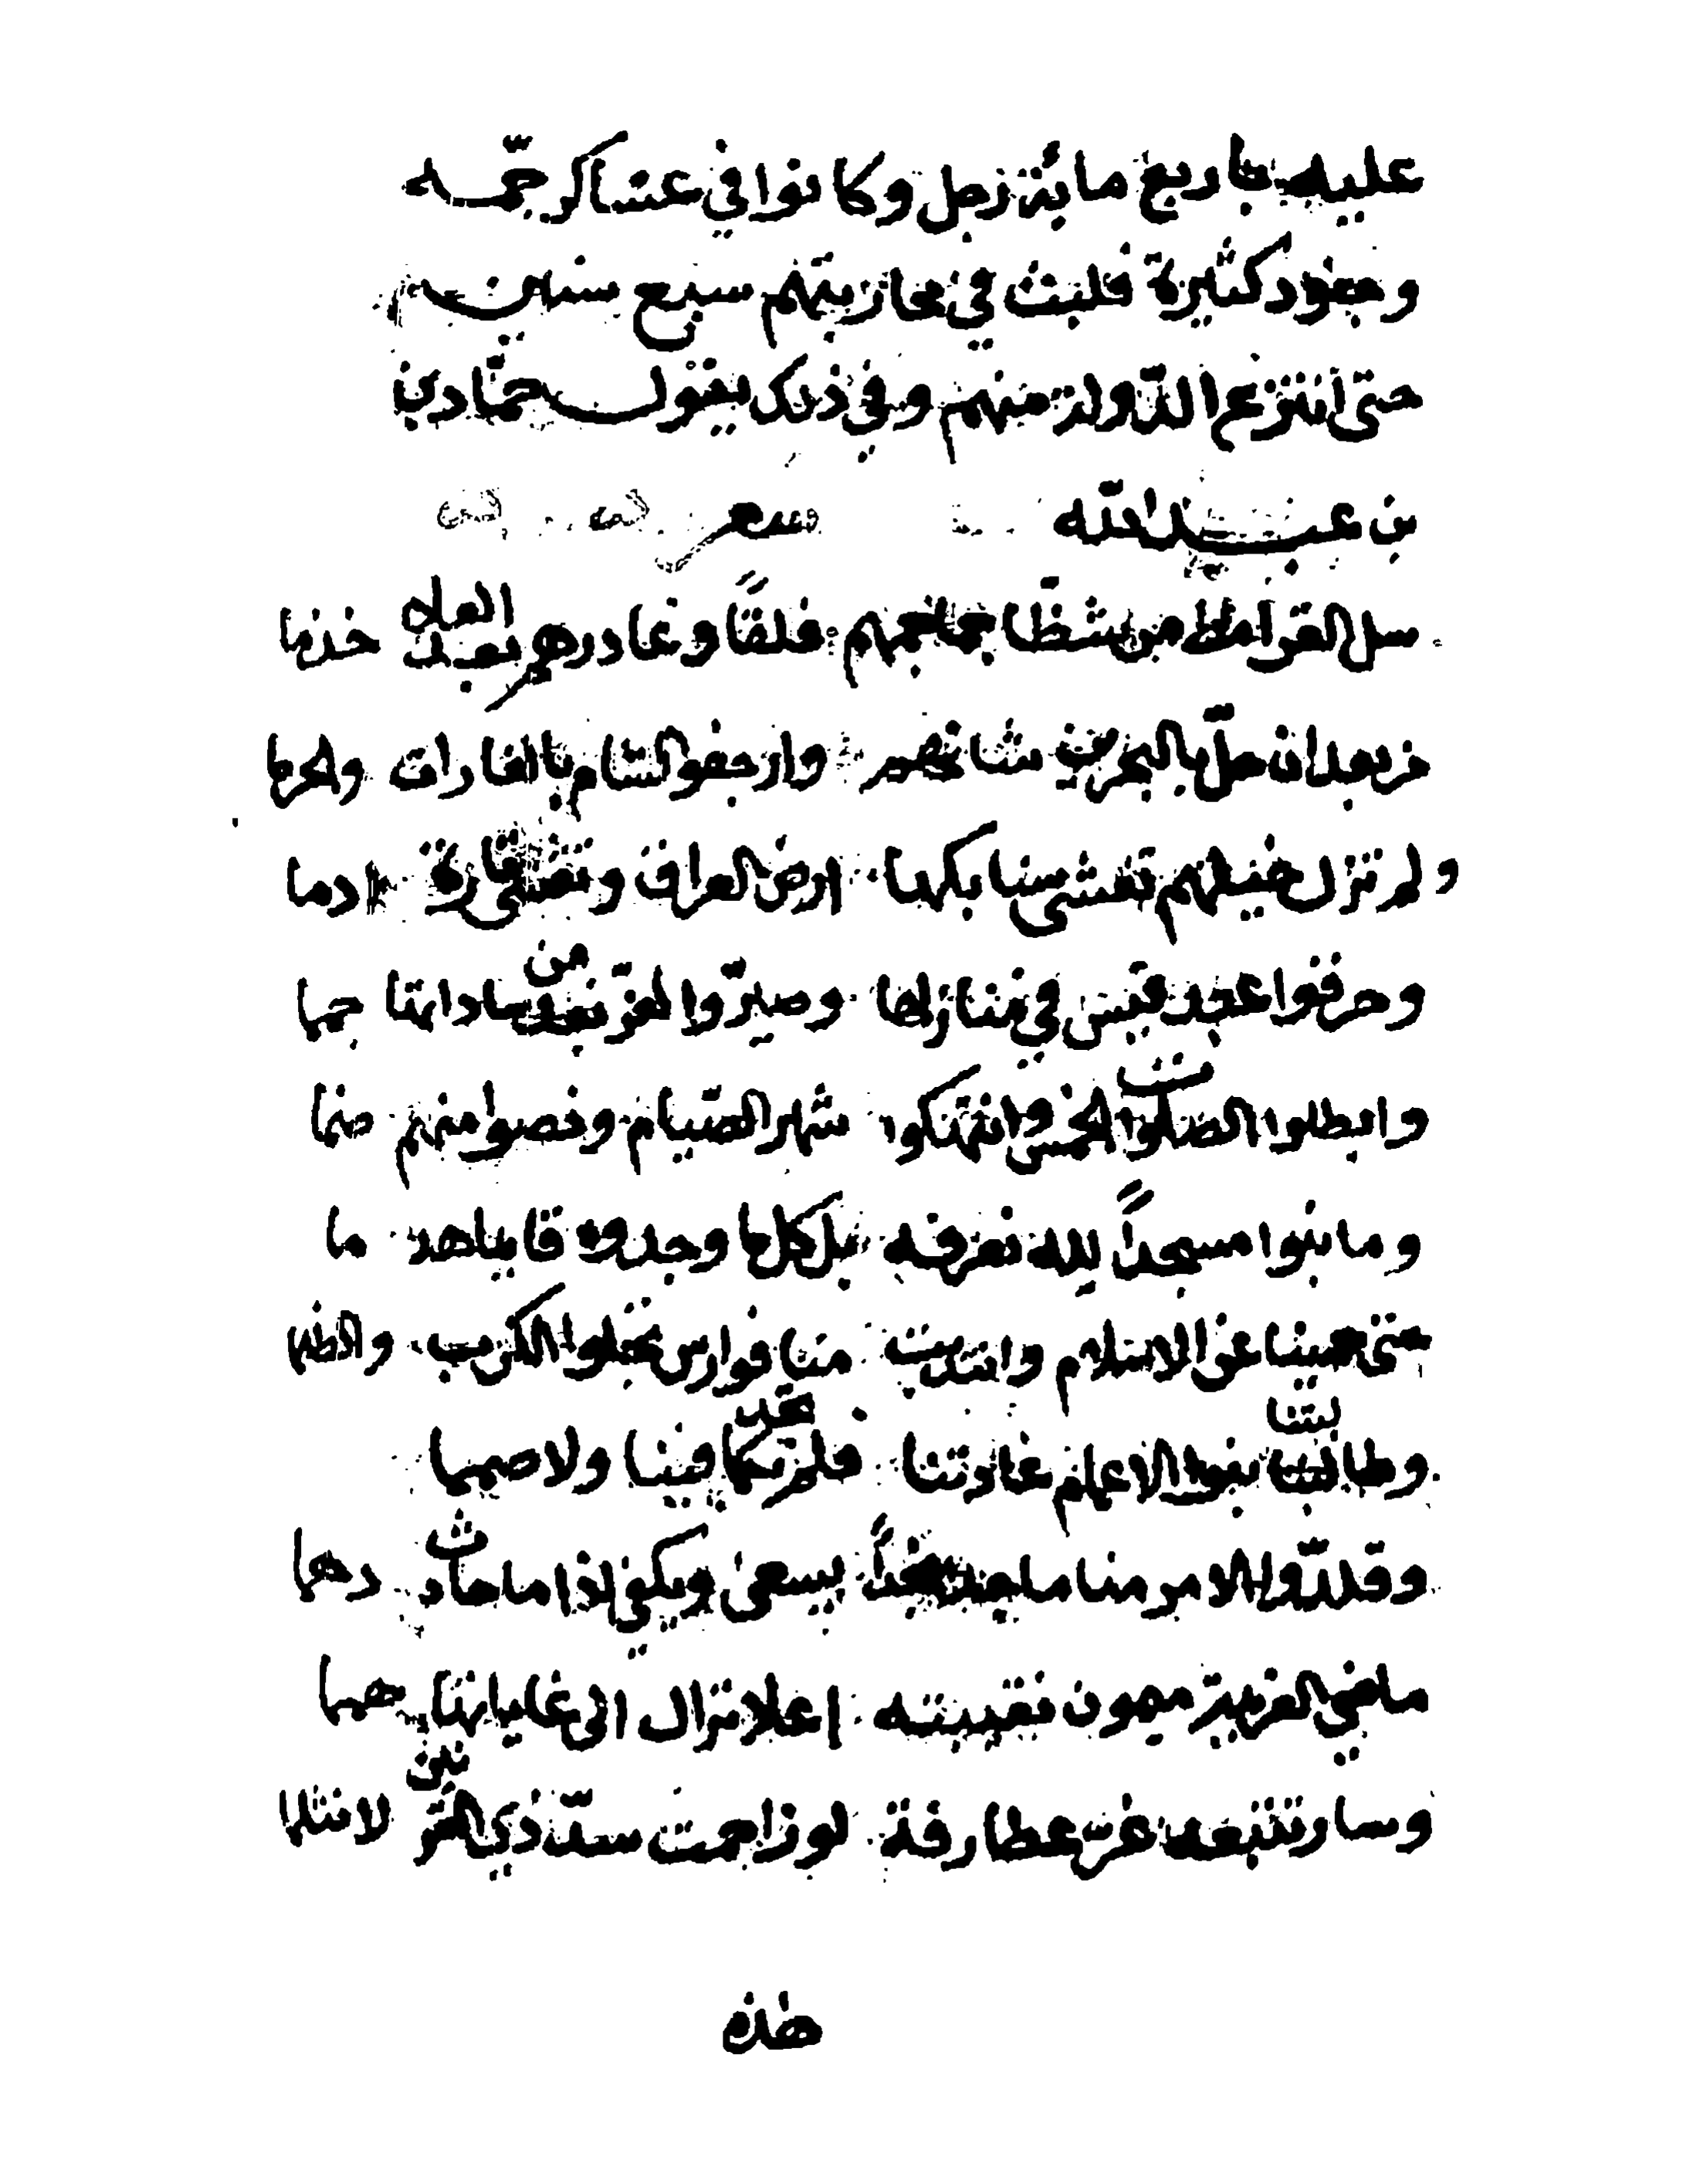 عليهم باربع مائة رجل وكانوا في عساكر جمّه
وجنود كثيرة فلبث في محاربتهم سبع سنين
حتى انتزع الدّولة منهم وفي ذلك يقول جمّادين
بن عبد الله شعر
سل القرامط من شظّا جماجمهم فلقًا وغادرهم بعد العلا خدما
من بعد ان حلّ بالبحرين شانهم وارجفوا الشام بالغارات والحرما
ولم تزل خيلهم تغشى سنابكها ارض العراق وتغشى تارة ادما
وحرقوا عبد قيس في منازلها وصيرّوا الغرّ من ساداتها حمما
وابطلوا الصلوات الخمس وانتهكوا شهر الصّيام ونصوا منهم صنما
وما بنوا مسجداً لله نعرفه بل كلما وجدوه قايما هدما
حتى حمينا عن الاسلام وانتدبت منا فوارس تجلوا الكرب والظما
وطالبتنا بنوا الاعمام عادتنا فلم تجد بكما فينا ولا صمما
وقلدّوا الامر منا ماجداً نجداً يسعى ويكفي اذا ما حادث دهما
ماضي العزيمة ميمون نقيبته اعلا نزال الى غاياتها همما
وسار تتبعه غرّ غطارفة لو زاحمت سدّ ذي القرنين لانثلما
هذه